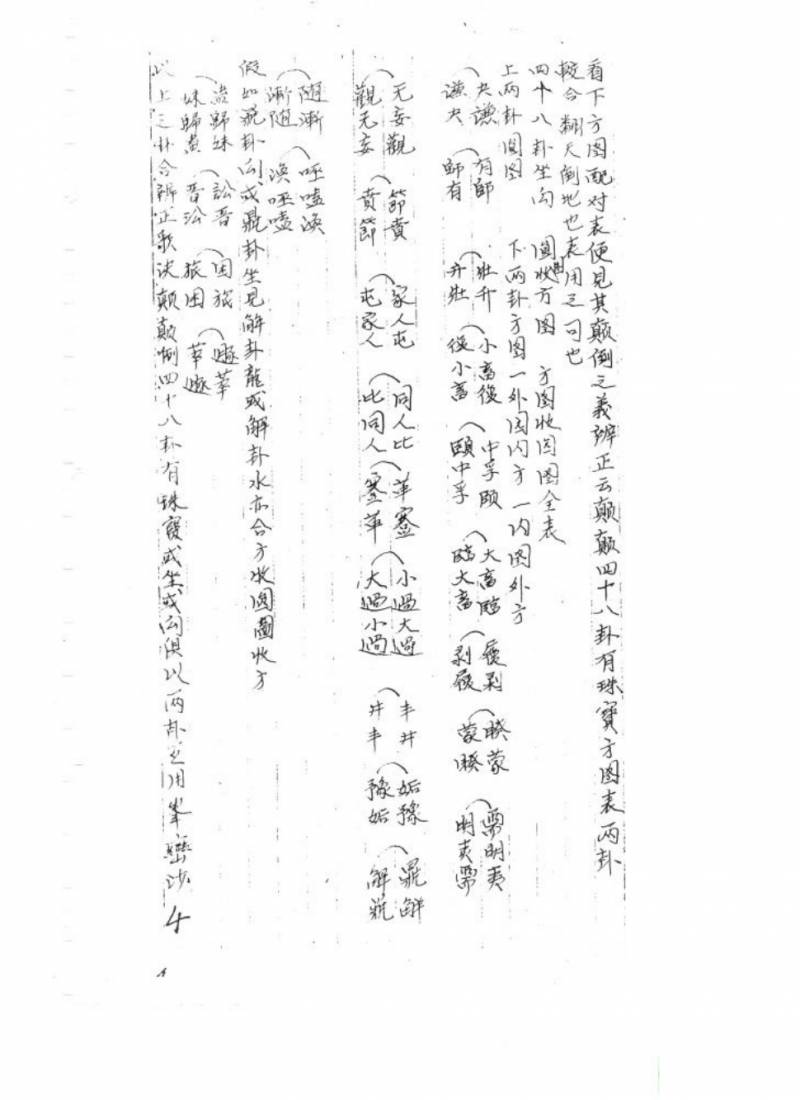 看下方图配对表便見其颠倒之義辨正云颠颠四十八卦有珠寳方图表两卦
較合翻天倒地也表用之可也
四十八卦坐向 圓图收方图 方图收圆图全表
上两卦圓图 下两卦方图一外圆内方一内圆外方
夬謙 有師 壯升 小畜復 中孚頤 大畜臨 履剥 睽蒙 需明夷
謙夬 師有 升壯 復小畜 頤中孚 臨大畜 剥履 蒙睽 明夷需
无妄觀 節賁 家人屯 同人比 革蹇 小過大過 丰井 姤豫 鼎解
觀无妄 賁節 屯家人 比同人 蹇革 大過小過 井丰 豫姤 解鼎
随漸 呸嗑渙
漸随 渙呸嗑
假如鼎卦向或鼎卦坐見解卦龍或解卦水亦合方收圆圖收方
蛊歸妹 訟晋 困旅 遯萃
妹歸蛊 晋訟 旅困 萃遯
以上之卦合辨正歌决颠颠倒四十八卦有珠寳或坐或向俱以两卦之用峯巒沙
4